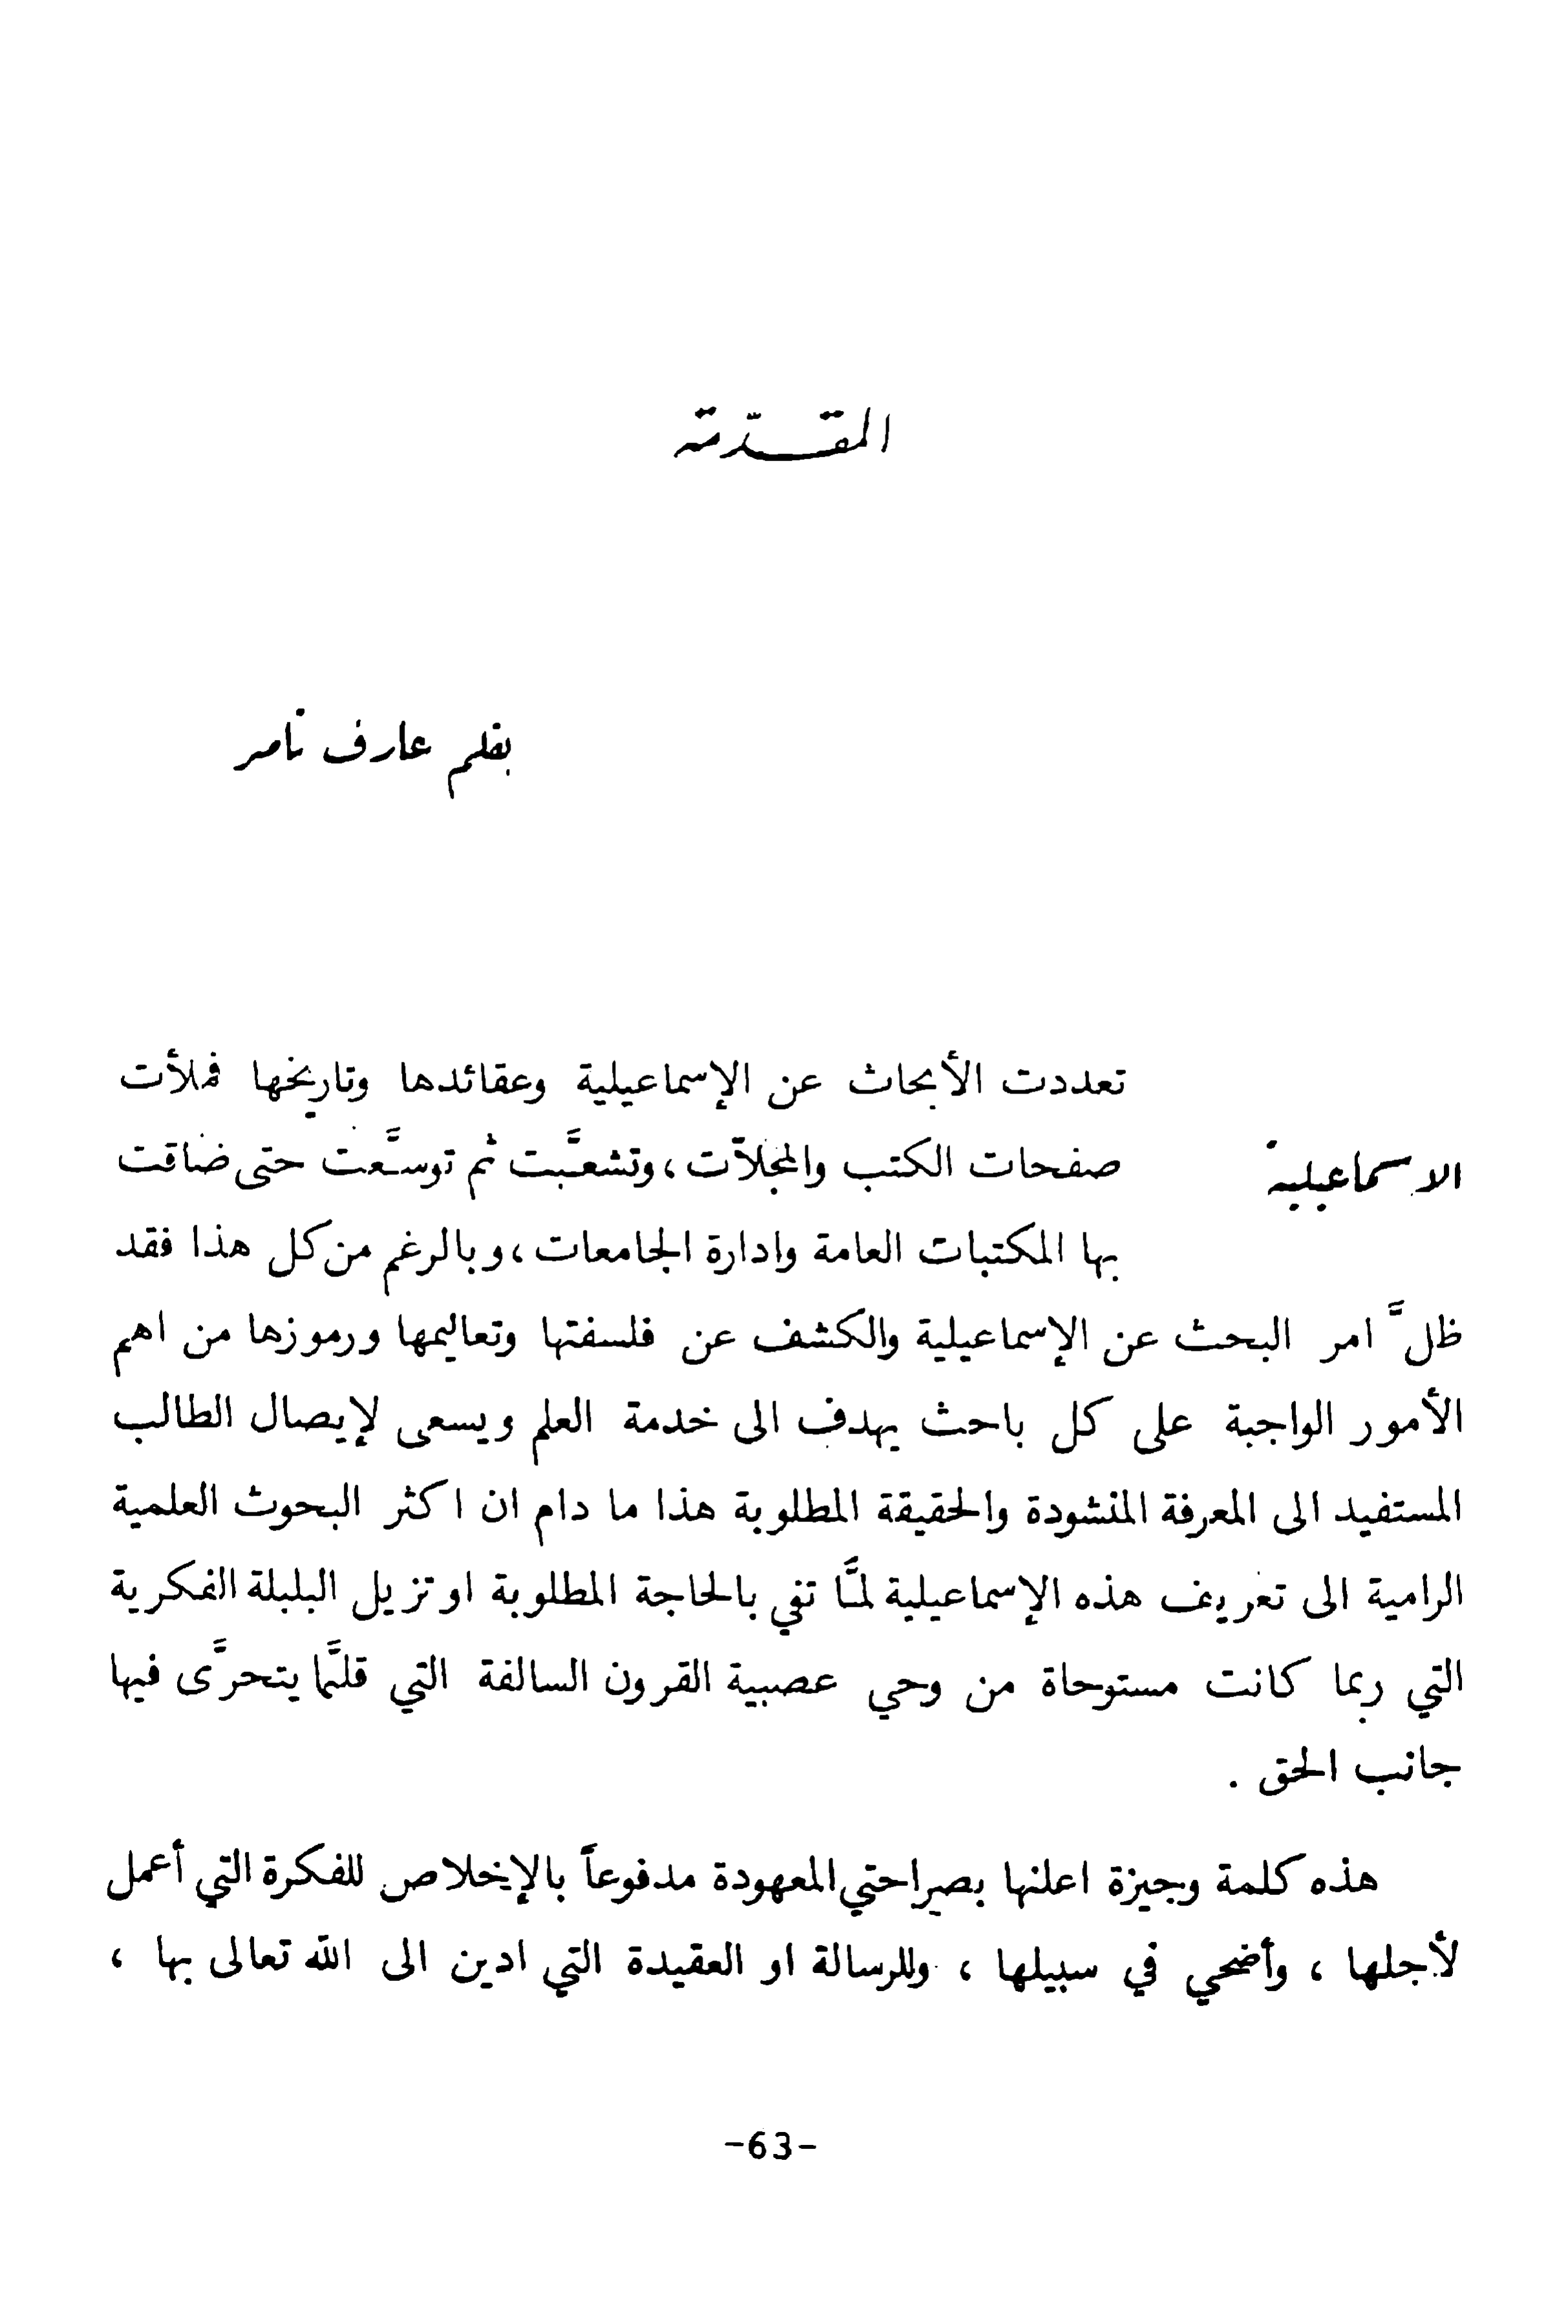 المقدّمة
بقلم عارف تامر
الاسماعيلية
تعددت الأبحاث عن الإسماعيلية وعقائدها وتاريخها فملأت
صفحات الكتب والمجلاّت ، وتشعَّبت ثم توسَّعت حتى ضاقت
بها المكتبات العامة وادارة الجامعات ، وبالرغم من كل هذا فقد
ظلَّ امر البحث عن الإسماعيلية والكشف عن فلسفتها وتعاليمها ورموزها من اهم
الأمور الواجبة على كل باحث يهدف الى خدمة العلم ويسعى لإيصال الطالب
المستفيد الى المعرفة المنشودة والحقيقة المطلوبة هذا ما دام ان اكثر البحوث العلمية
الرامية الى تعريف هذه الإسماعيلية لمَّا تفي بالحاجة المطلوبة او تزيل البلبلة الفكرية
التي ربما كانت مستوحاة من وحي عصبية القرون السالفة التي قلَّما يتحرَّى فيها
جانب الحق .
هذه كلمة وجيزة اعلنها بصراحتي المعهودة مدفوعاً بالإخلاص للفكرة التي أعمل
لأجلها ، وأضحي في سبيلها ، وللرسالة او العقيدة التي ادين الى الله تعالى بها ،
-63-